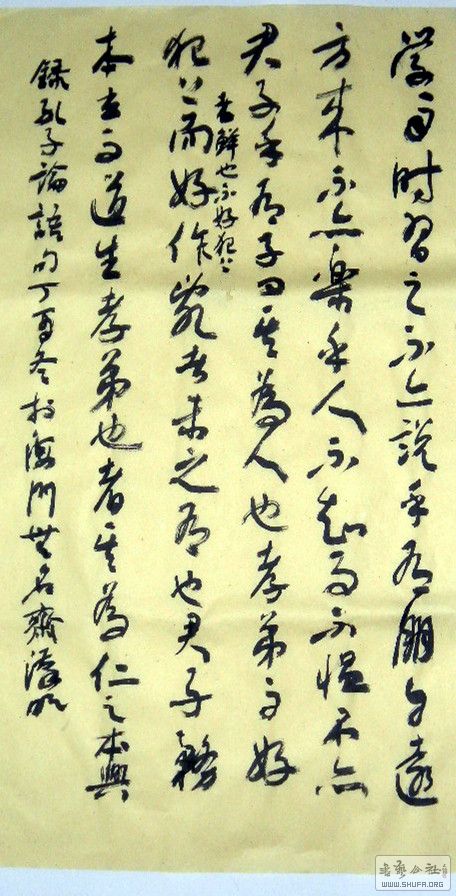 学而时习之不亦説乎有朋自遠
方来不亦樂乎人不知而不愠不亦
君子乎有子曰其為人也孝弟而好
犯上者鮮也不好犯上
而好作亂者未之有也君子務
本本立而道生孝弟也者其為仁之本與
録孔子論語句丁酉冬於海門無名齋
書法公社
WWW.SHUFA.ORG